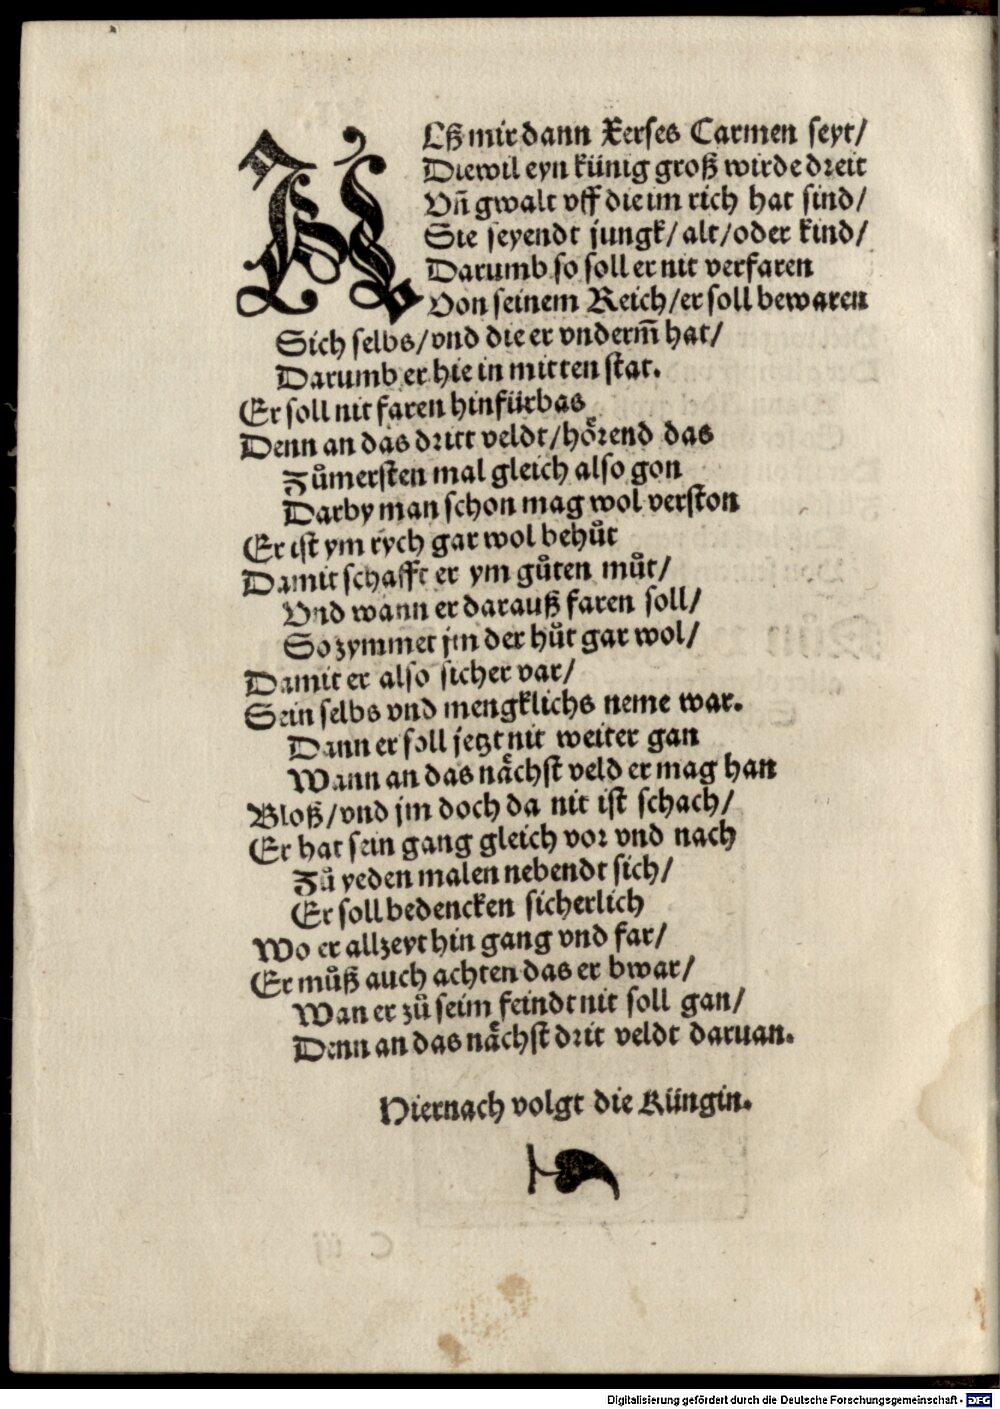 ALß mir dann Xerses Carmen seyt/
Diewil eyn künig groß wirde dreit
Vñ gwalt vff die im rich hat sind/
Sie seyendt jungk/alt/oder kind/
Darumb so soll er nit verfaren
Von seinem Reich/er soll bewaren
Sich selbs/vnd die er vnderm̃ hat/
Darumb er hie in mitten stat.
Er soll nit faren hinfürbas
Denn an das dritt veldt/hoͤrend das
Zuͦmersten mal gleich also gon
Darby man schon mag wol verston
Er ist ym rych gar wol behuͦt
Damit schafft er ym guͦten muͦt/
Vnd wann er darauß faren soll/
So zymmet jm der huͦt gar wol/
Damit er also sicher var/
Sein selbs vnd mengklichs neme war.
Dann er soll jetzt nit weiter gan
Wann an das naͤchst veld er mag han
Bloß/vnd jm doch da nit ist schach/
Er hat sein gang gleich vor vnd nach
Zuͦ yeden malen nebendt sich/
Er soll bedencken sicherlich
Wo er allzeyt hin gang vnd far/
Er muͦß auch achten das er bwar/
Wan er zuͦ seim feindt nit soll gan/
Denn an das naͤchst drit veldt daruan.
Hiernach volgt die Küngin.
Digitalisierung gefördert durch die Deutsche Forschungsgemeinschaft - DFG